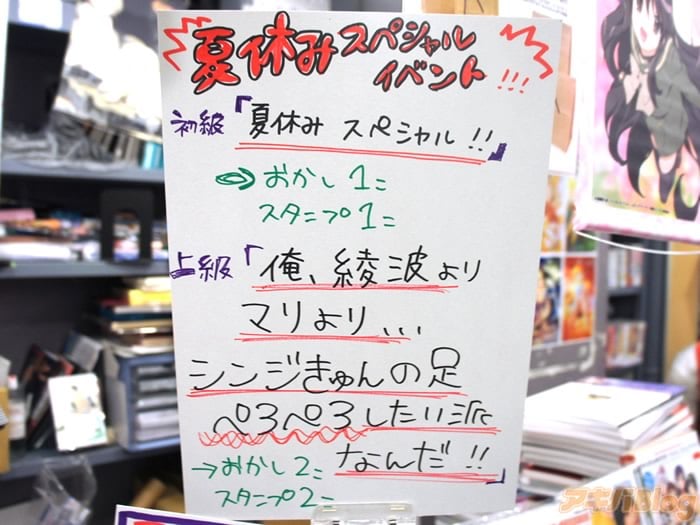 夏休みスペシャル
イベント!!!
初級「夏休み スペシャル!!」
⇒おかし1コ
スタンプ1コ
上級「俺、綾波より
マリより...
シンジきゅんの足
ペろペろしたい派
なんだ!!」
→おかし2コ
スタンプ2コ
アキバBlog